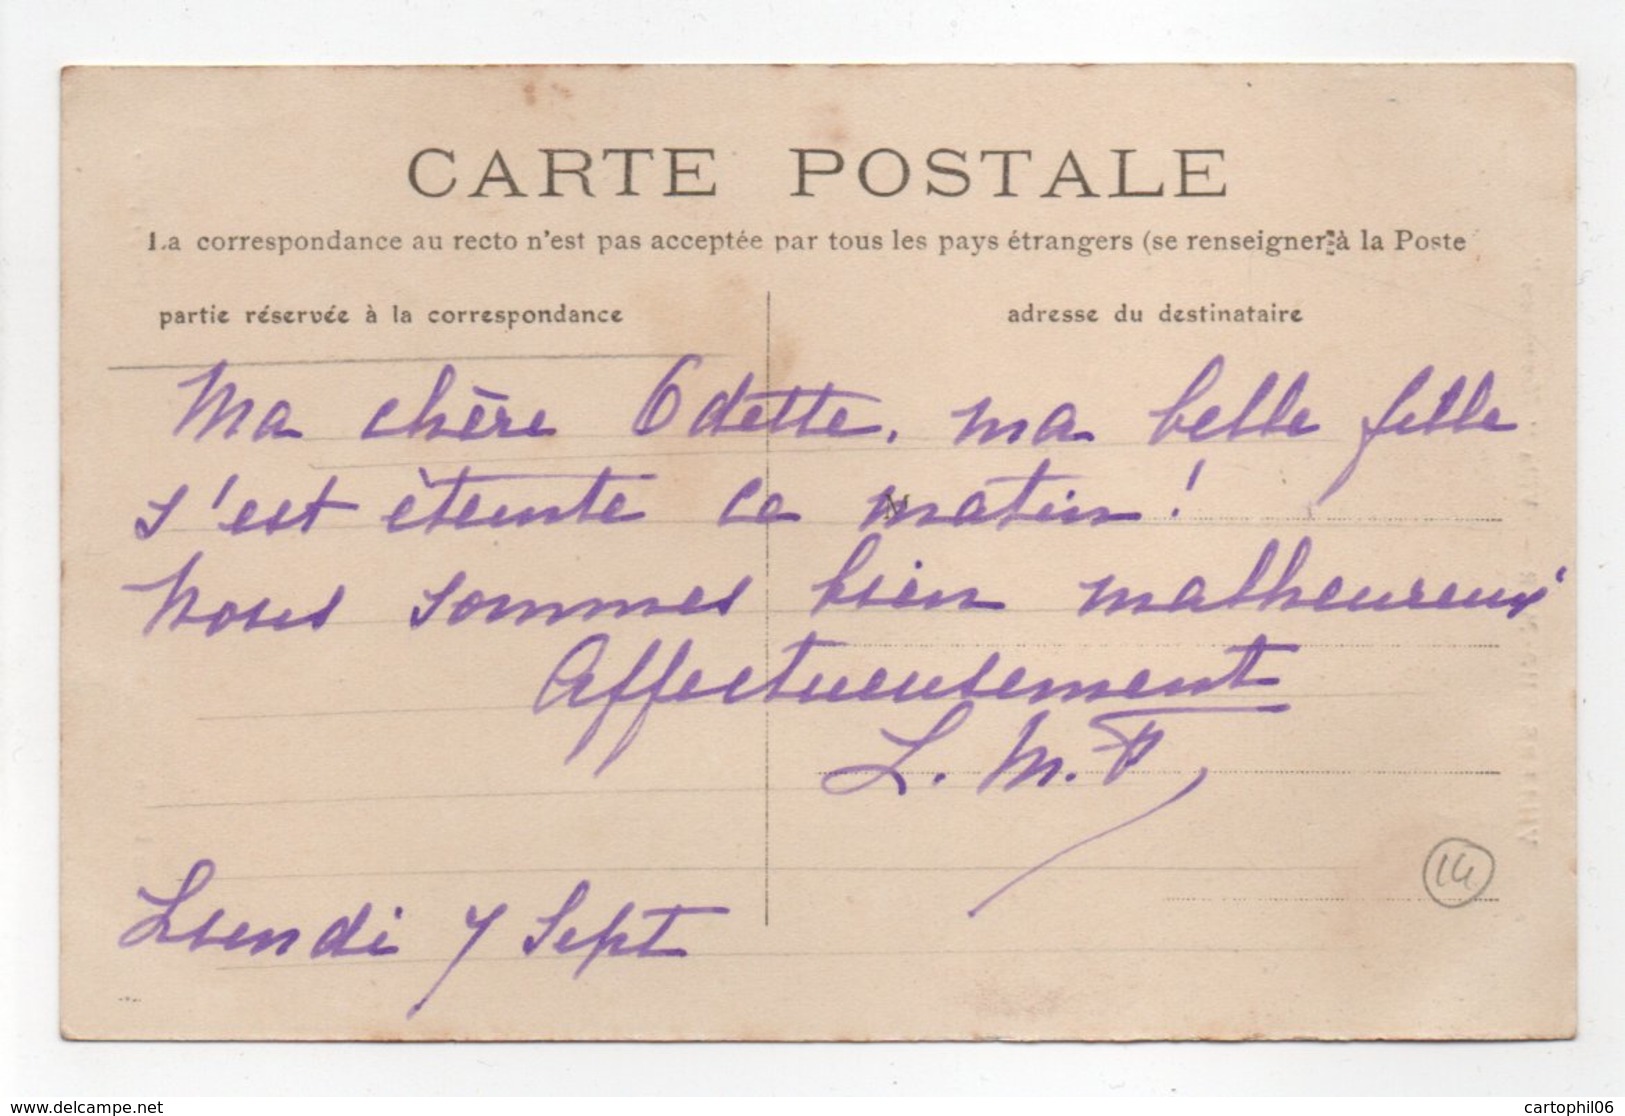 CARTE POSTALE
La correspondance au recto n'est pas acceptée par tous les pays étrangers (se renseigner à la Poste
partie réservée à la correspondance
adresse du destinataire
Ma chère Odette, ma belle fille
s'est éteinte ce matin !
Nous sommes bien malheureux
Affectueusement
L. M. P
Lundi 7 Sept
14
www.delcampe.net
cartophil06